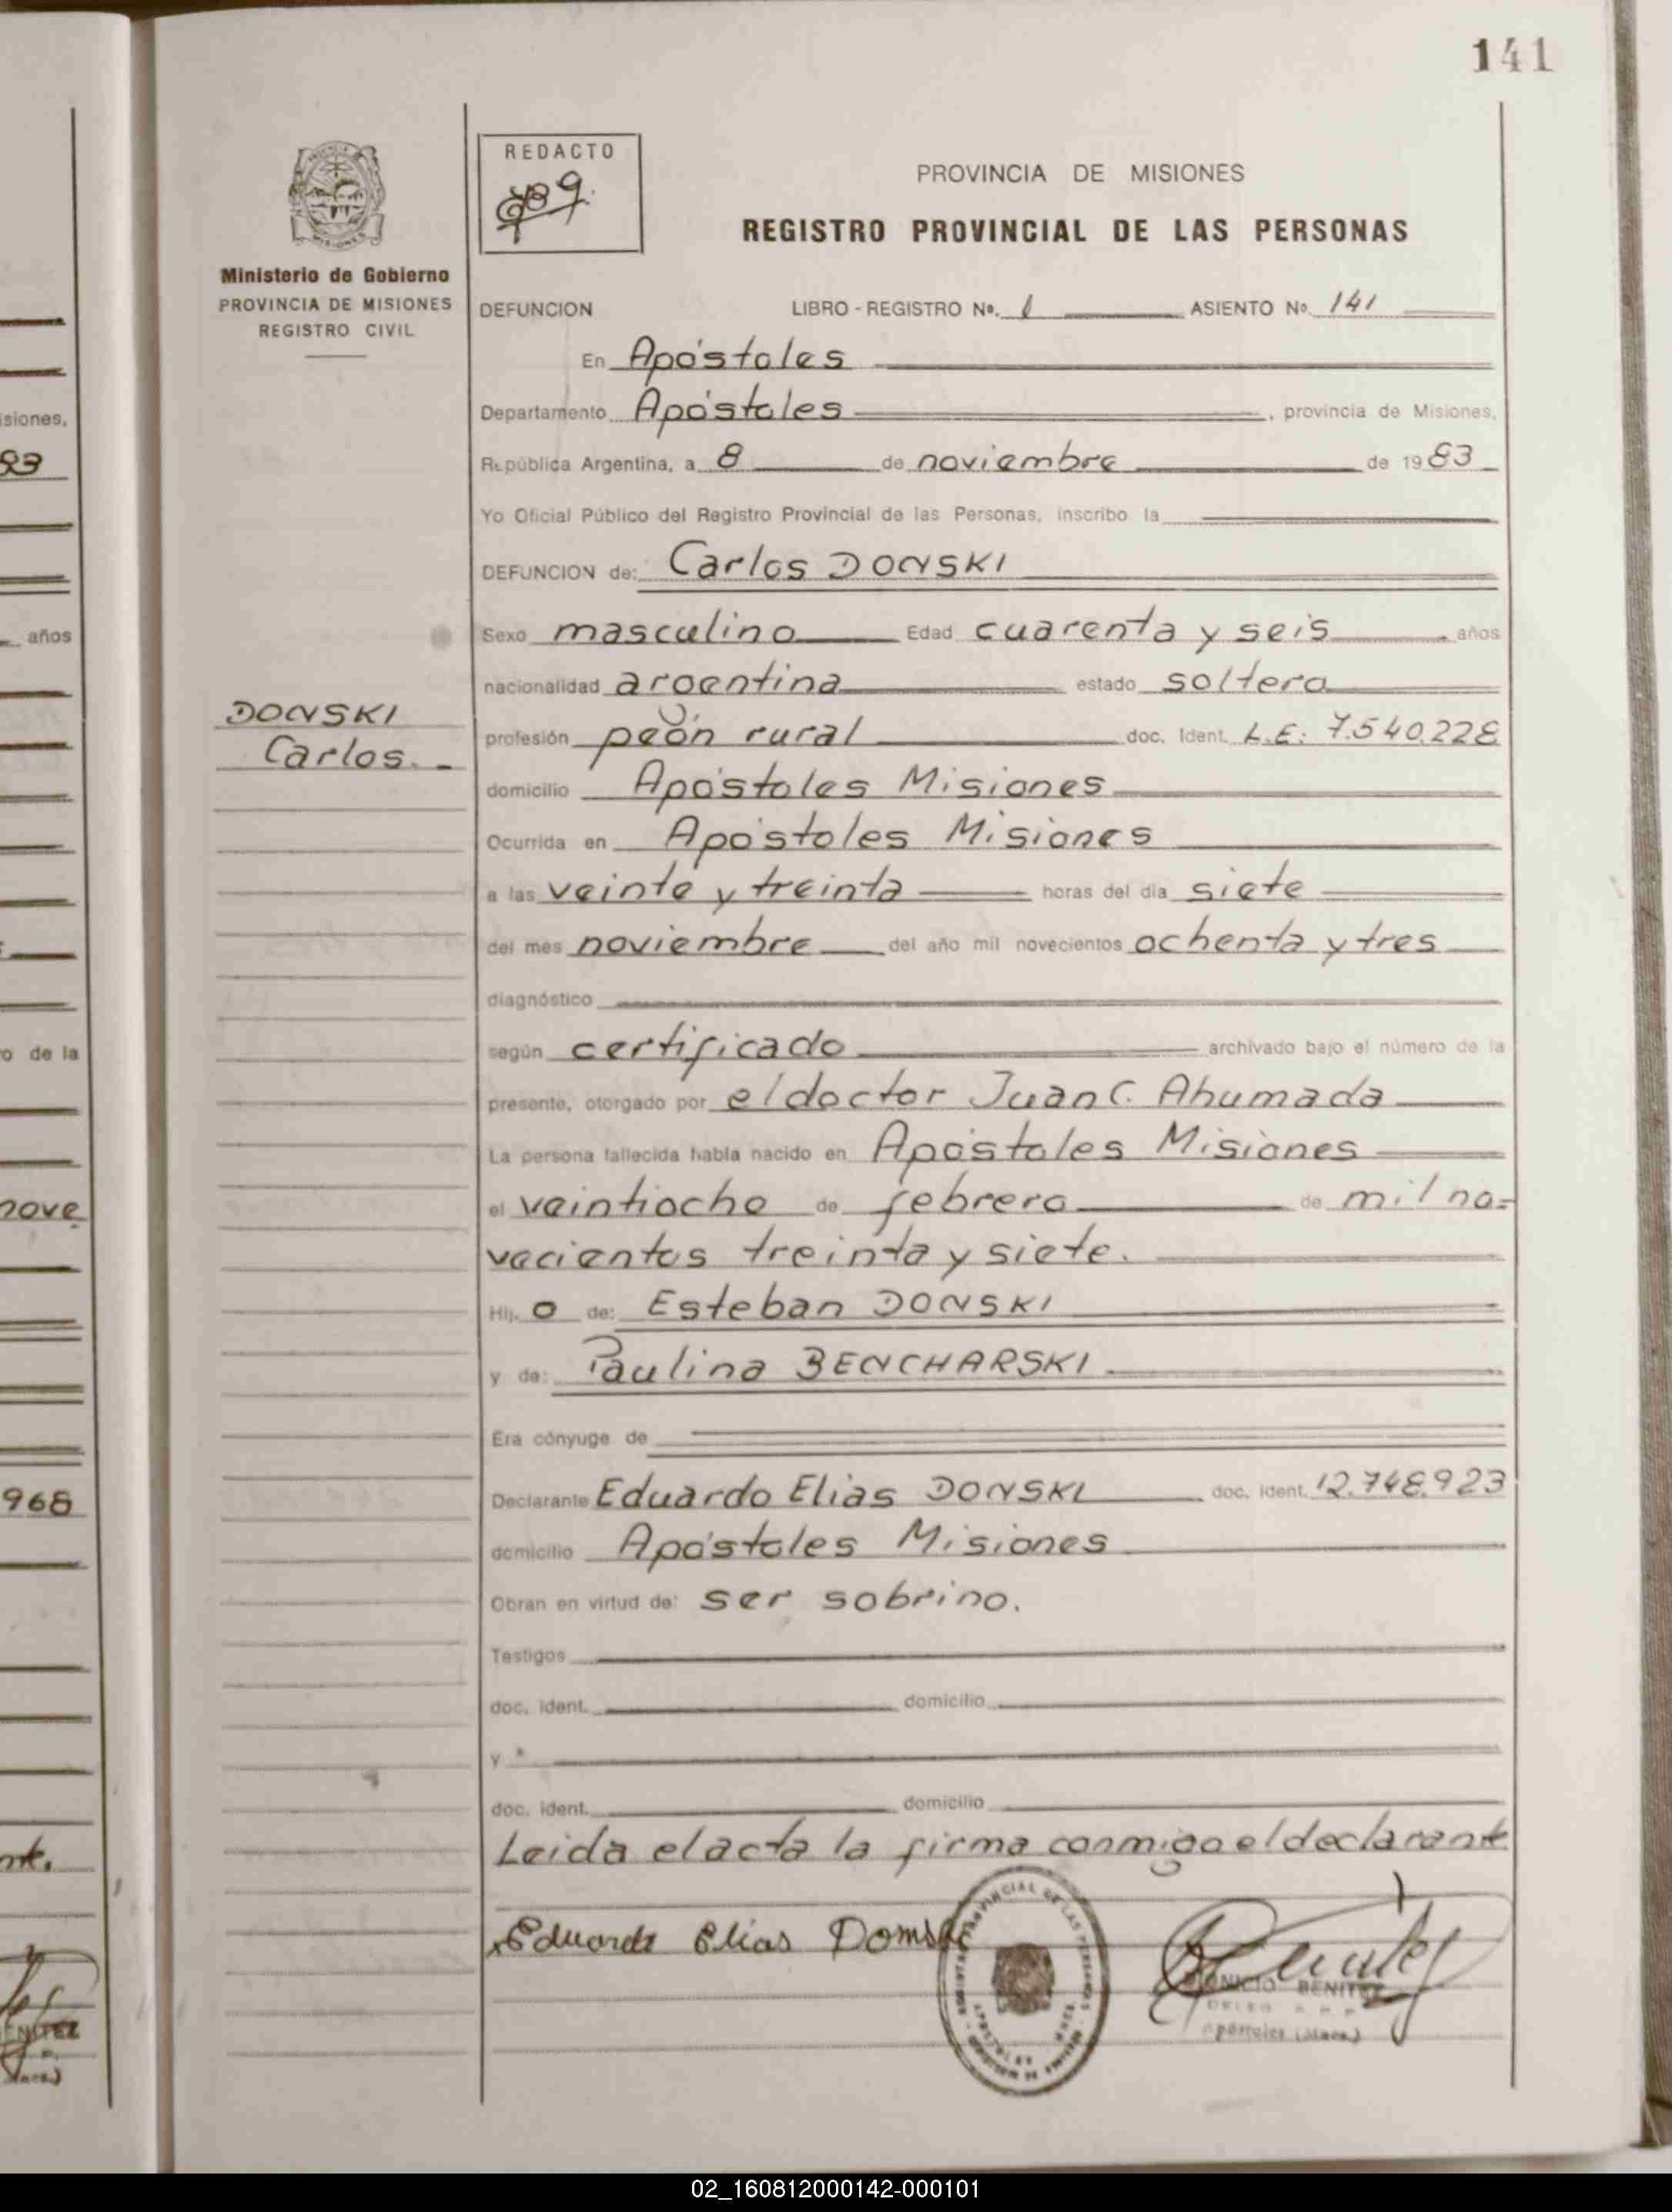 141
REDACTO
PROVINCIA DE MISIONES
REGISTRO PROVINCIAL DE LAS PERSONAS
Ministerio de Gobierno
PROVINCIA DE MISIONES
REGISTRO CIVIL
DEFUNCION LIBRO - REGISTRO Nº. 1 ASIENTO Nº. 141
En Apóstoles
Departamento Apóstoles, provincia de Misiones,
República Argentina, a 8 de noviembre de 1983
Yo Oficial Público del Registro Provincial de las Personas, inscribo la
DEFUNCION de: Carlos DONSKI
Sexo masculino Edad cuarenta y seis años
nacionalidad argentina estado soltero
DONSKI
Carlos.-
profesión peón rural doc. Ident. L.E: 7.540.228
domicilio Apóstoles Misiones
Ocurrida en Apóstoles Misiones
a las veinte y treinta horas del día siete
del mes noviembre del año mil novecientos ochenta y tres
diagnóstico
según certificado archivado bajo el número de la
presente, otorgado por el doctor Juan C. Ahumada
La persona fallecida había nacido en Apóstoles Misiones
el veintiocho de febrero de mil no=
vecientos treinta y siete.
Hij o de: Esteban DONSKI
y de: Paulina BENCHARSKI
Era cónyuge de
Declarante Eduardo Elias DONSKI doc. Ident. 12.748.923
domicilio Apóstoles Misiones
Obran en virtud de: ser sobrino.
Testigos
doc. ident. domicilio
y
doc. ident. domicilio
Leida el acta la firma conmigo el declarante
Eduardo Elias
BENITEZ
Apóstoles (Mnes.)
siones,
83
años
o de la
nove
968
nte.
ENITEZ
02_160812000142-000101